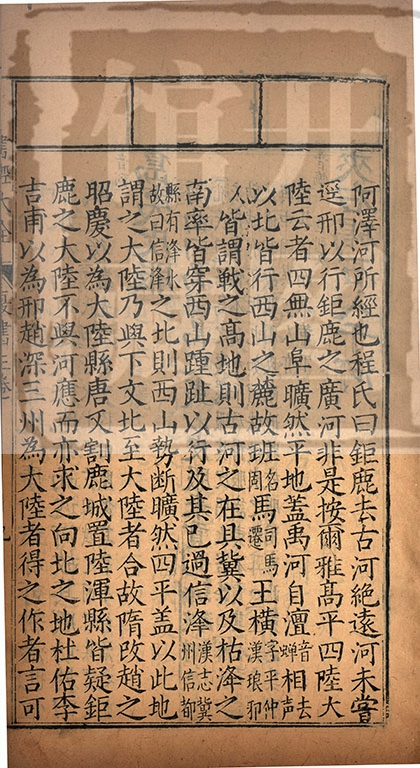 阿澤河所經也程氏曰鉅鹿去古河絶遠河未甞
逕邢以行鉅鹿之廣河非是按爾雅髙平四陸大
陸云者四無山阜曠然平地蓋禹河自澶音蟬相去声
以北皆行西山之麓故班名固馬司馬遷王横字平仲漢琅邪
人皆謂載之髙地則古河之在貝冀以及枯洚之
南率皆穿西山踵趾以行及其已過信洚漢志冀州信都
縣有洚水故曰信洚之北則西山勢断曠然四平盖以此地
謂之大陸乃與下文北至大陸者合故隋改趙之
昭慶以為大陸縣唐又割鹿城置陸渾縣皆疑鉅
鹿之大陸不與河應而亦求之向北之地杜佑李
吉甫以為邢趙深三州為大陸者得之作者言可
書經大全